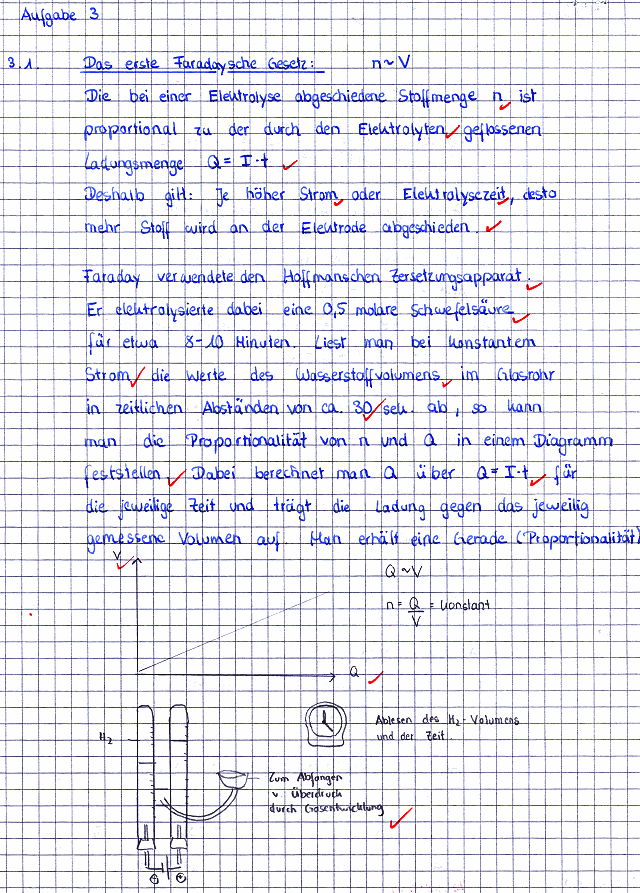 Aufgabe 3
3.1. Das erste Faradaysche Gesetz: n ~ V
Die bei einer Elektrolyse abgeschiedene Stoffmenge n ist
proportional zu der durch den Elektrolyten geflossenen
Ladungsmenge Q = I·t
Deshalb gilt: Je höher Strom oder Elektrolysezeit, desto
mehr Stoff wird an der Elektrode abgeschieden.
Faraday verwendete den Hoffmanschen Zersetzungsapparat.
Er elektrolysierte dabei eine 0,5 molare Schwefelsäure
für etwa 8-10 Minuten. Liest man bei konstantem
Strom die Werte des Wasserstoffvolumens im Glasrohr
in zeitlichen Abständen von ca. 30 sek. ab, so kann
man die Proportionalität von n und Q in einem Diagramm
feststellen. Dabei berechnet man Q über Q = I·t für
die jeweilige Zeit und trägt die Ladung gegen das jeweilig
gemessene Volumen auf. Man erhält eine Gerade (Proportionalität)
V
Q ~ V
n = Q/V = konstant
Q
H2
Ablesen des H2-Volumens
und der Zeit.
Zum Abfangen
v Überdruck
durch Gasentwicklung
- +